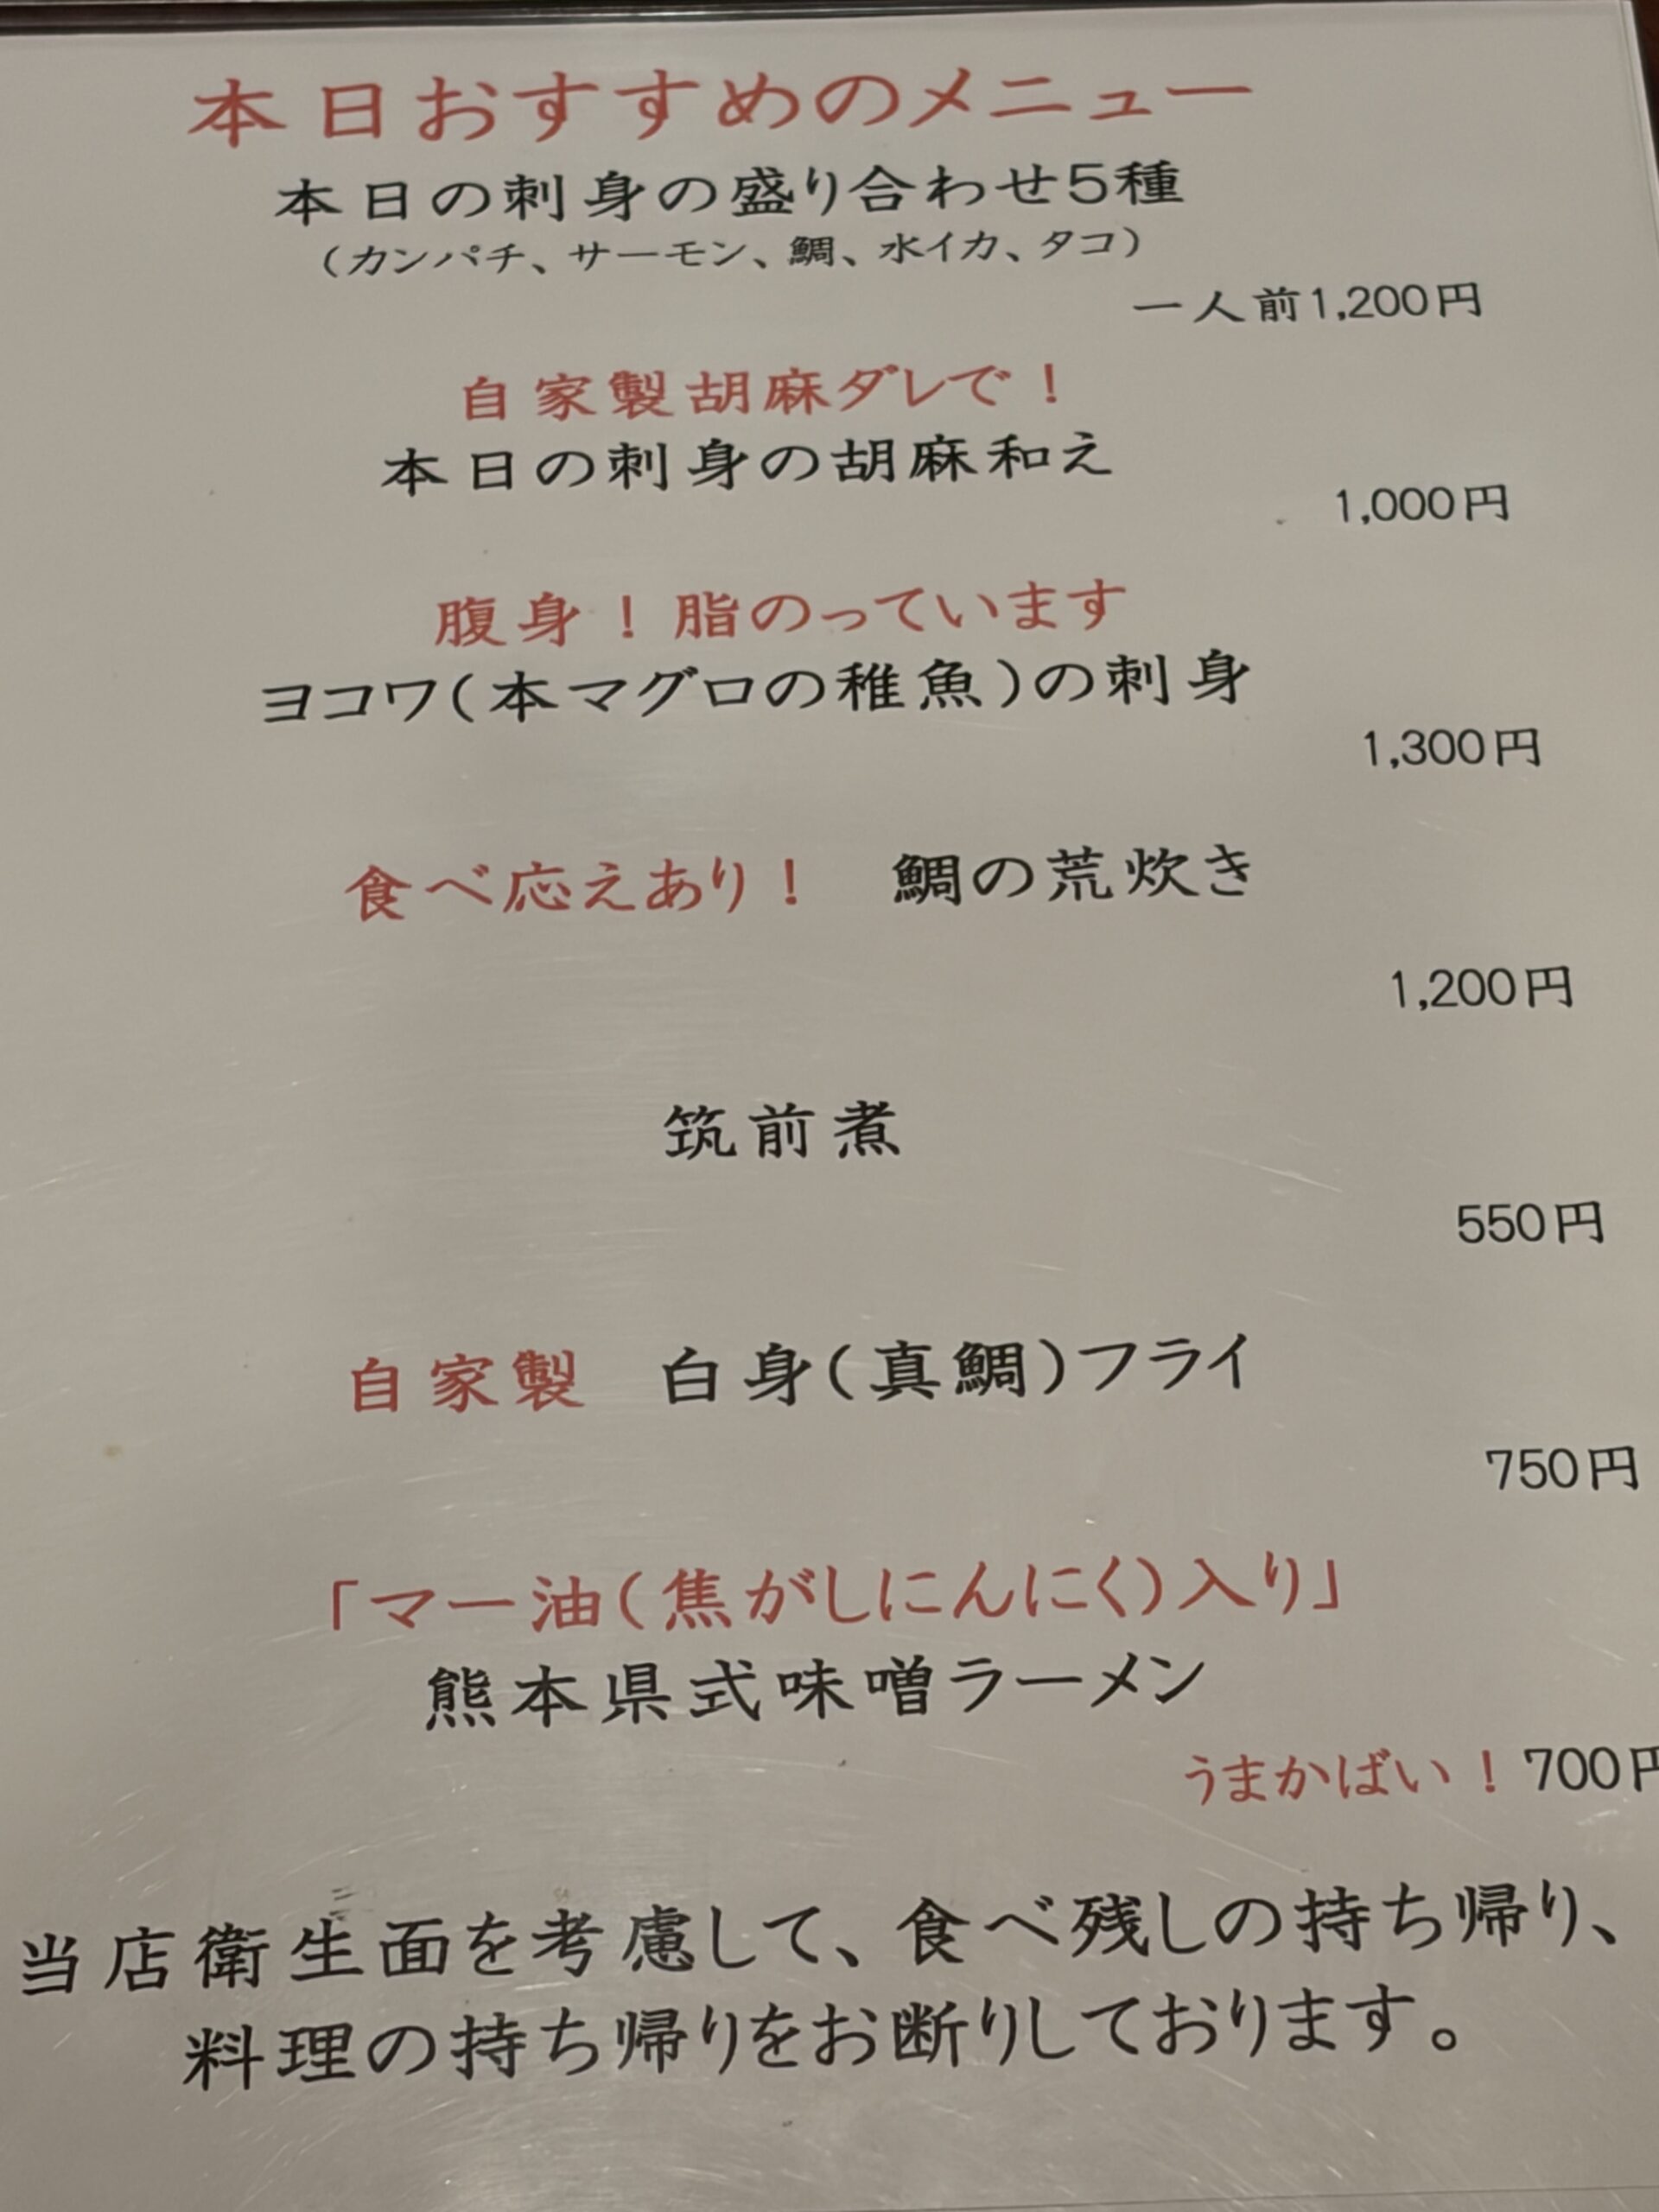 本日おすすめのメニュー
本日の刺身の盛り合わせ5種
（カンパチ、サーモン、鯛、水イカ、タコ）
一人前1,200円
自家製胡麻ダレで！
本日の刺身の胡麻和え
1,000円
腹身！脂のっています
ヨコワ(本マグロの稚魚)の刺身
1,300円
食べ応えあり！　鯛の荒炊き
1,200円
筑前煮
550円
自家製　白身(真鯛)フライ
750円
「マー油(焦がしにんにく)入り」
熊本県式味噌ラーメン
うまかばい！700円
当店衛生面を考慮して、食べ残しの持ち帰り、
料理の持ち帰りをお断りしております。